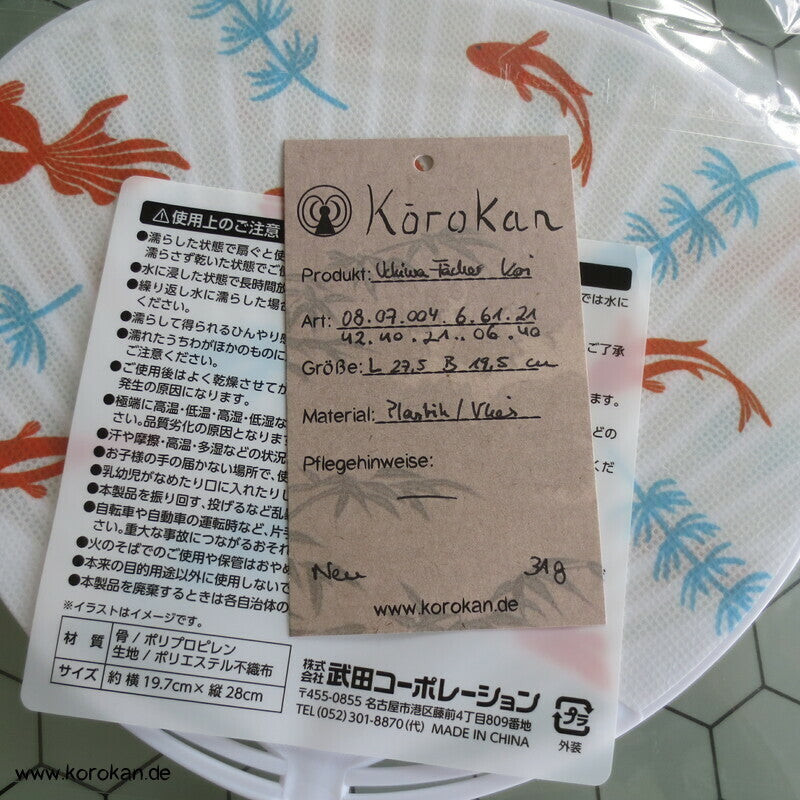 Kōrokan
Produkt: Uchiwa-Fächer Koi
Art: 08.07.004.6.61.21
42.40.21..06.40
Größe: L 27,5 B 19,5 cm
Material: Plastik/Vlies
Pflegehinweise:
Neu 31g
www.korokan.de
⚠使用上のご注意
●濡らした状態で扇ぐと使
濡らさず乾いた状態でご使
●水に浸した状態で長時間放
●繰り返し水に濡らした場合
ください。
●濡らして得られるひんやり感
●濡れたうちわがほかのものに
ご注意ください。
●ご使用後はよく乾燥させてか
発生の原因になります。
●極端に高温・低温・高湿・低湿な
さい。品質劣化の原因となります
●汗や摩擦・高温・多湿などの状況
●お子様の手の届かない場所で、使
●乳幼児がなめたり口に入れたりし
●本製品を振り回す、投げるなど乱
●自転車や自動車の運転時など、片手
さい。重大な事故につながるおそれ
●火のそばでのご使用や保管はおやめ
●本来の目的用途以外に使用しないで
●本製品を廃棄するときは各自治体の
では水に
ご了承
す。
どの
くだ
※イラストはイメージです。
材質 骨/ポリプロピレン
生地/ポリエステル不織布
サイズ 約 横19.7cm×縦28cm
株式会社 武田コーポレーション
〒455-0855 名古屋市港区藤前4丁目809番地
TEL(052)301-8870(代) MADE IN CHINA
プラ
外装
www.korokan.de